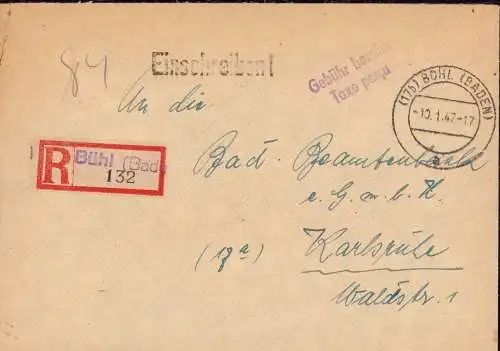 84
Einschreiben!
Gebühr bezahlt
Taxe perçu
(17b) BÜHL (BADEN)
-10.1.47-17
a
An die
R Bühl (Bad
132
Bad. Beamtenbank
e. G. m. b. H.
(17a) Karlsruhe
Waldstr. 1